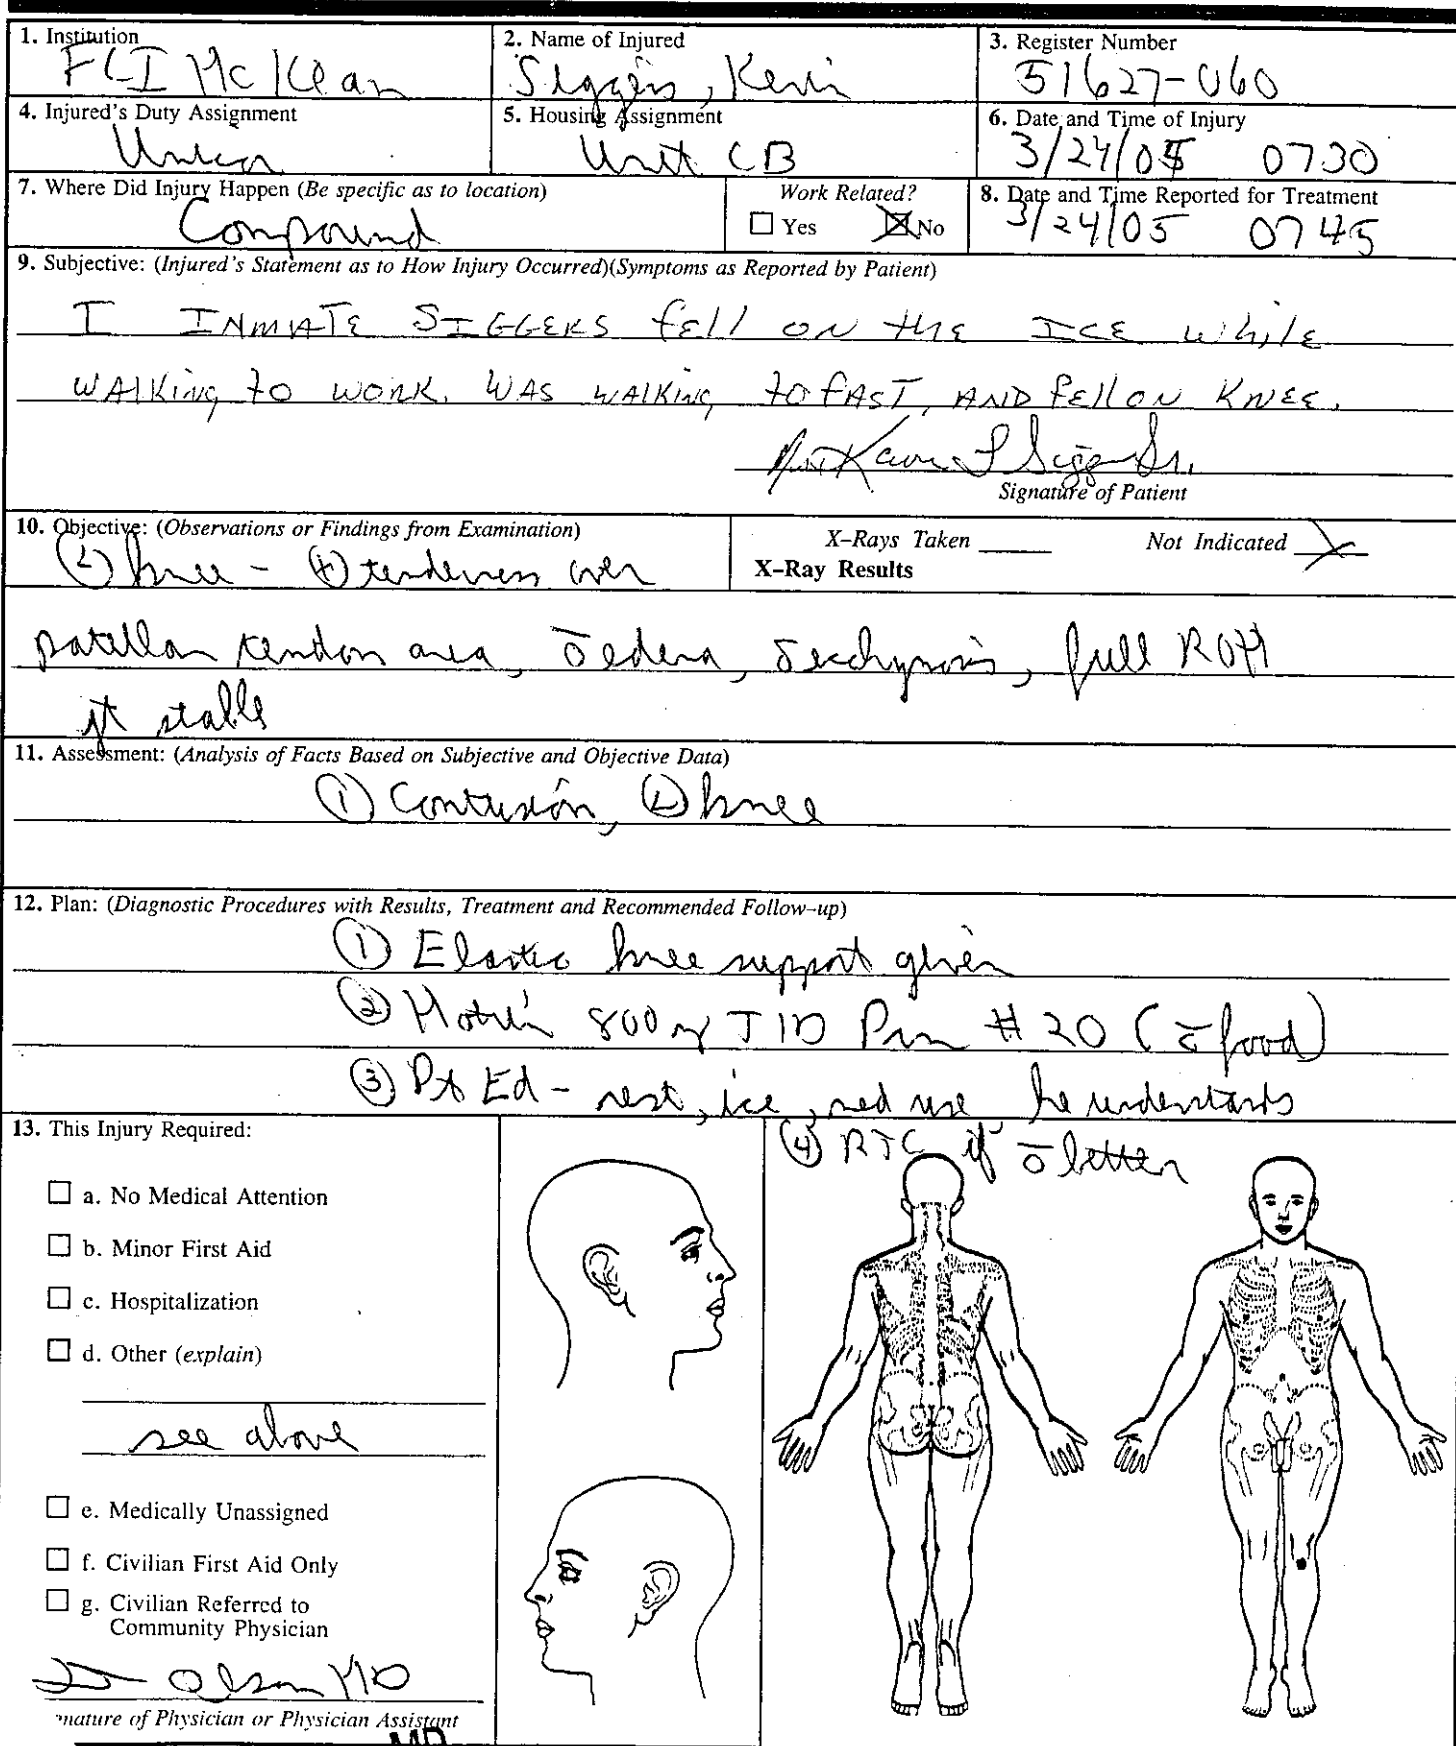 1. Institution
FCI McKean
2. Name of Injured
Siggers, Kevin
3. Register Number
51627-060
4. Injured's Duty Assignment
Unicor
5. Housing Assignment
Unit CB
6. Date and Time of Injury
3/24/05 0730
7. Where Did Injury Happen (Be specific as to location)
Compound
Work Related?
☐ Yes ☒ No
8. Date and Time Reported for Treatment
3/24/05 0745
9. Subjective: (Injured's Statement as to How Injury Occurred)(Symptoms as Reported by Patient)
I INMATE SIGGERS fell on the ICE while
WALKing to work. WAS WALKing to fAST, AND fell on KNEE.
Signature of Patient
10. Objective: (Observations or Findings from Examination)
X-Rays Taken ____ Not Indicated X
X-Ray Results
(L) knee - (+) tenderness over
patellar tendon area, ō edema, ō ecchymosis, full ROM
jt stable
11. Assessment: (Analysis of Facts Based on Subjective and Objective Data)
① Contusion, (L) knee
12. Plan: (Diagnostic Procedures with Results, Treatment and Recommended Follow-up)
① Elastic knee support given
② Motrin 800 mg TID Prn #20 (c̄ food)
③ Pt Ed - rest, ice, med use he understands
④ RTC if ō better
13. This Injury Required:
☐ a. No Medical Attention
☐ b. Minor First Aid
☐ c. Hospitalization
☐ d. Other (explain)
see above
☐ e. Medically Unassigned
☐ f. Civilian First Aid Only
☐ g. Civilian Referred to
Community Physician
Olson MD
nature of Physician or Physician Assistant
MD